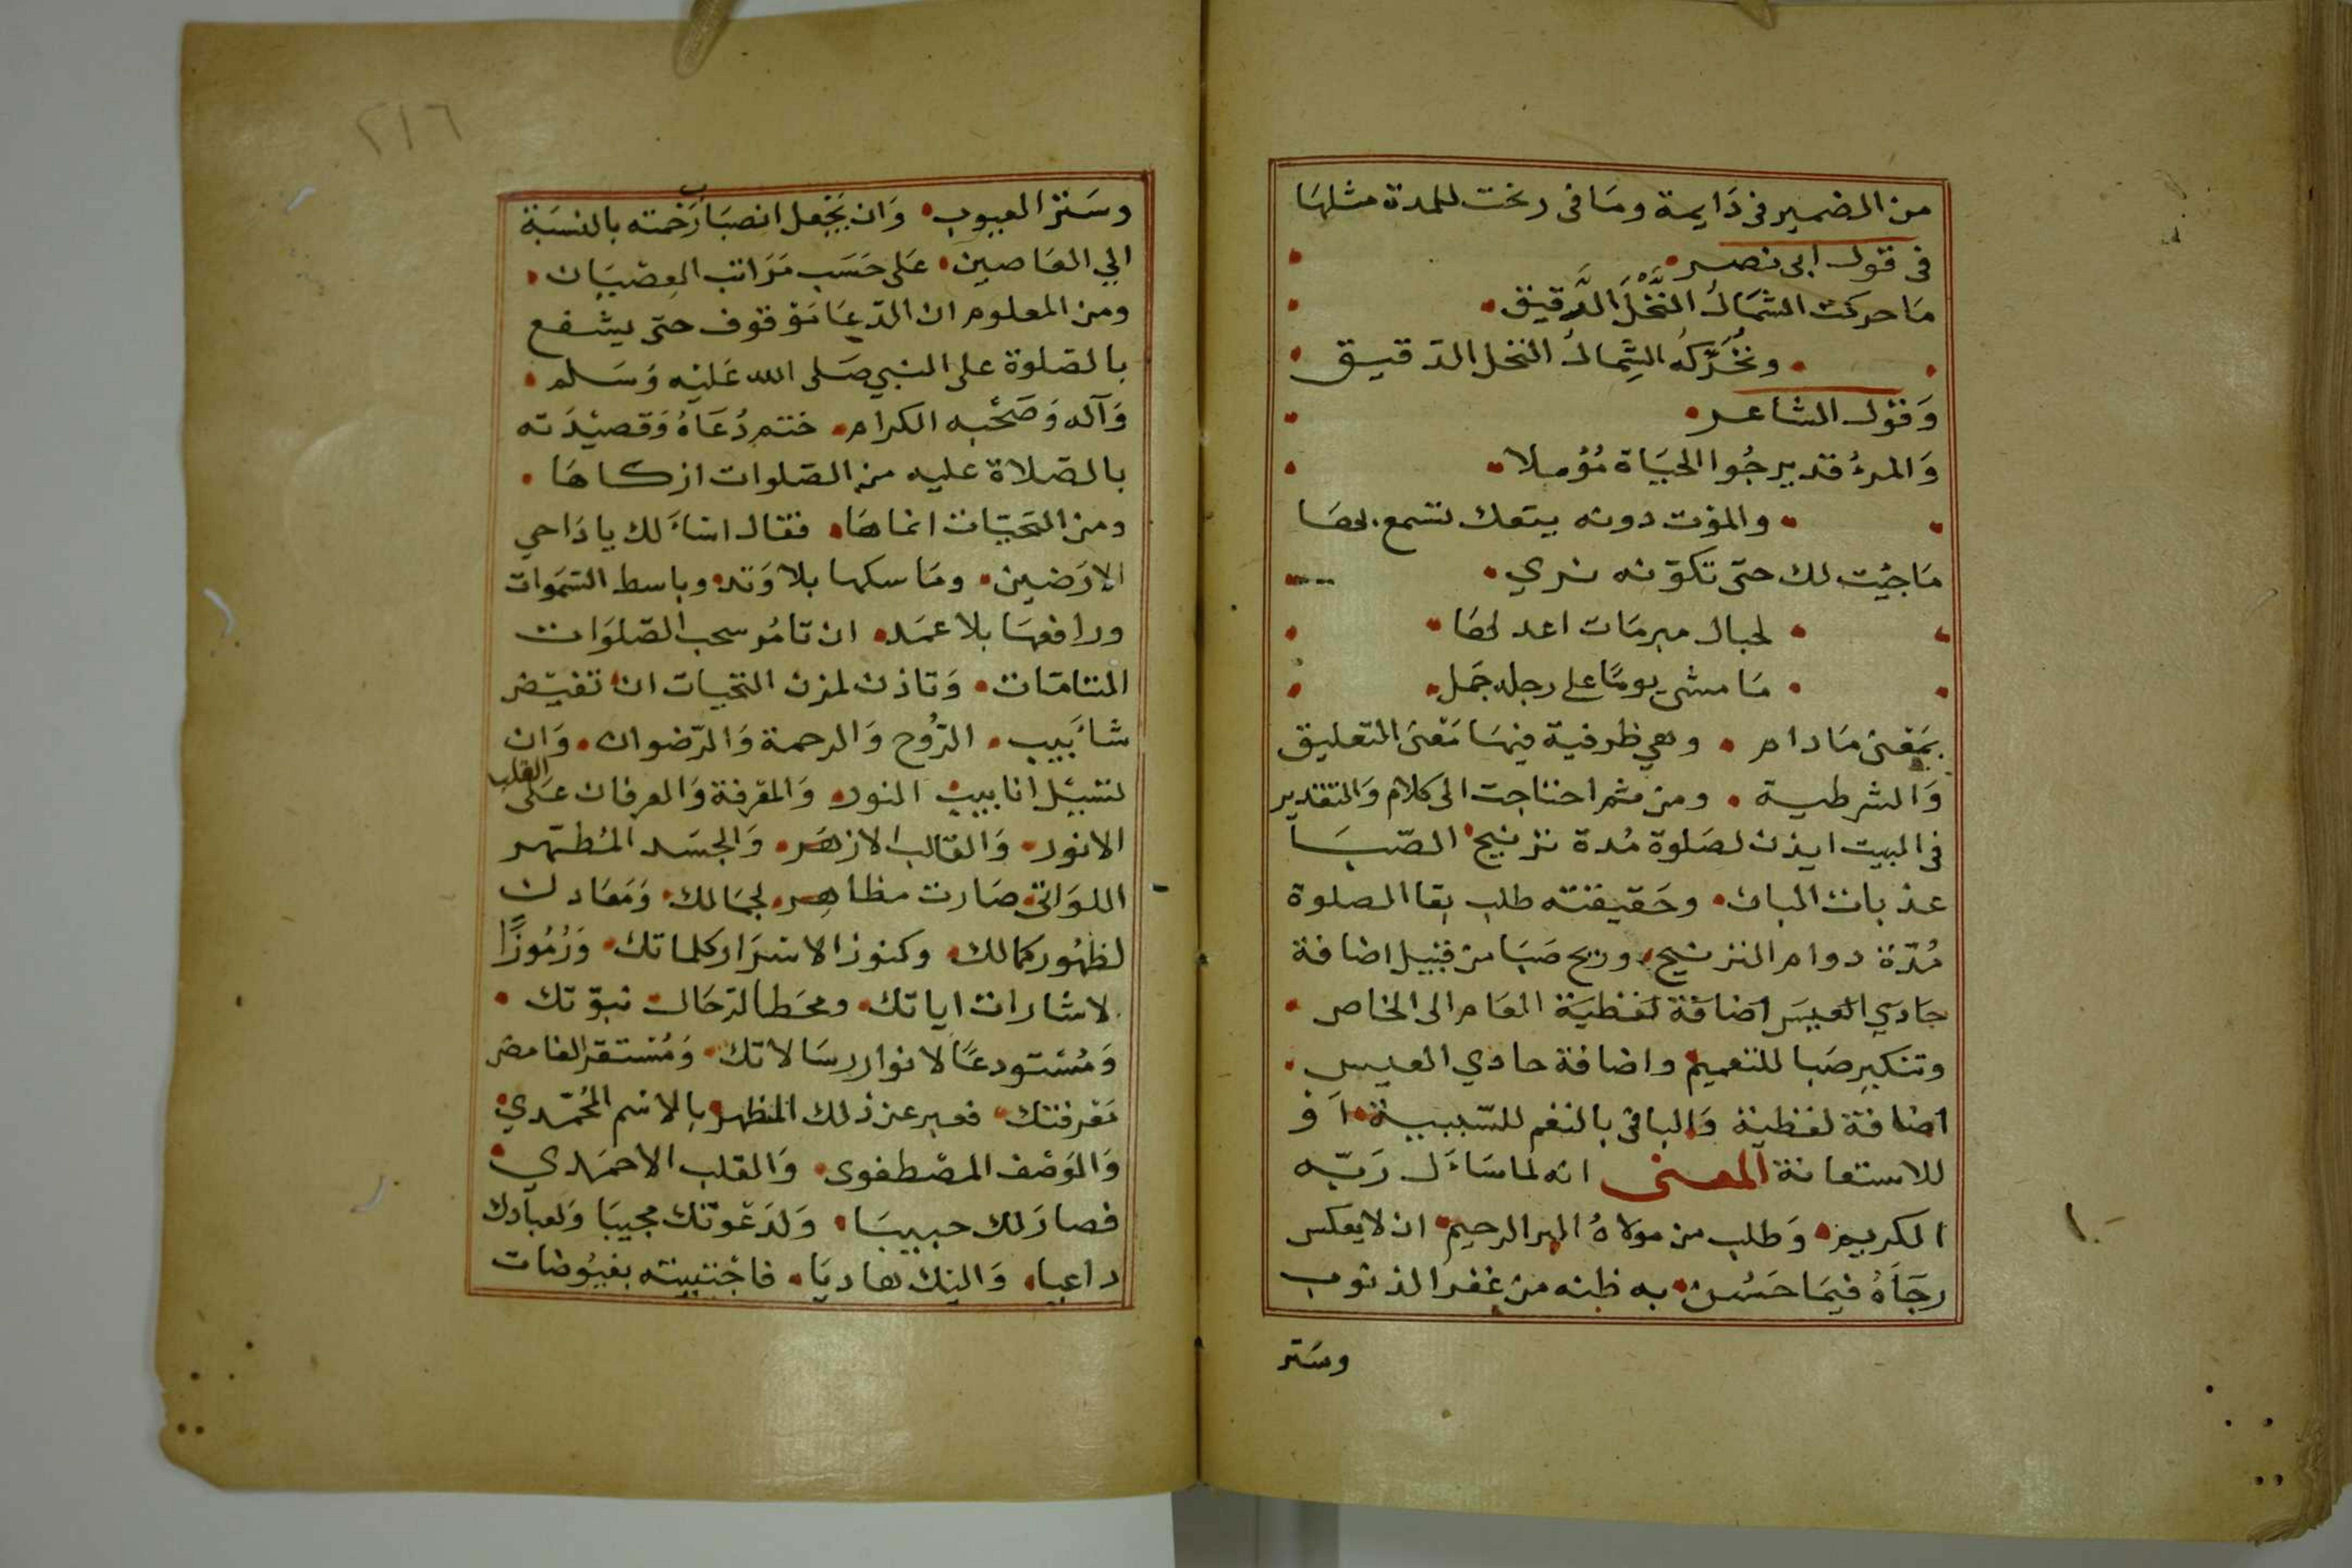 من الضمير فى دَايمة ومَا فى رنحت للمدة مثلهَا
فى قول ابى نصر
مَا حركت الشمَالُ النَّخْلَ الدَّقيق
ونحُرِّكهُ الشِمالُ النخل الدقيق
وَقوْل الشاعر
وَالمرءُ قد يرجُوا الحيَاة مُؤملا
والموْت دونه
مَا جيْت لك حتى تكوّنه
لحبال مبرمَات اعد لحضَا
مَا مشى يومًا على رجله جَمل
بمَعْنى مَا دام وهي ظرفية فيهَا مَعْنى التعليق
وَالشرطية ومن ثم احتاجت الى كلام وَالتقدير
فى البيت ايذن لصَلوة مُدة ترنيح الصّبَا
عذبات البان وحَقيقته طلب بقا الصلوة
مُدّة دوام الترنيح وريح صَبَا من قبيل اضافة
حَادي العِيسَ اضافَة لفظيَة العَام الى الخاص
وتنكير صَبا للتعميم واضافة حادي العيس
اضافة لفظية وَالباقى بالنغم للسّببية اَو
للاستعانة المعنى انه لما سَاَل رَبّه
الكريم وَطلب من مولاهُ البر الرحيم ان لا يعكس
رجَاَهُ فيمَا حَسُن به ظنه من غفر الذنوب
وسَتر
٢١٦
وسَتر العيوب وَان يَجْعل انصبَاب رَحْمته بالنسَبة
الي العَاصين عَلى حَسَب مَرَاتب العِصْيَان
ومن المعلوم ان الدّعَا مَوْقوف حتى يشفع
بالصّلوة على النبي صَلى الله عَليْه وَسَلم
وَآله وَصَحْبه الكرام ختم دُعَاهُ وَقصيْدَته
بالصّلاة عليه من الصّلوات ازكاهَا
ومن التحيّات انماهَا فقال اسْاَلك يا دَاحي
الارَضين ومَاسكها بلا وَتد وباسط السّمَوات
ورافعهَا بلا عمَد ان تامُر سحب الصّلوَات
التامّات وَتاذن لمزن التحيات ان تفيّض
شاَبيب الرُّوح وَالرحمة وَالرّضوان وَان
لتسْيل انابيب النور وَالمعْرفة وَالعرفان عَلى القلب
الانور وَالقالب الازهَر وَالجسَد المُطهّر
اللوَاتى صَارت مظاهر لجمَالك وَمَعَادن
لظهُور كمالك وكنوز الاسْرَار كلماتك وَرُمُوزًا
لاشارات اياتك ومحَطا لرحَال نبوّتك
وَمُسْتودعًا لانوار رسَالاتك وَمُسْتقر الغامض
مَعْرفتك فعبر عن ذلك المظهر بالاسْم المُحمّدي
وَالوَصْف المصْطفوى وَالقلب الاحمَدي
فصارَ لك حبيبَا وَلدَعْوتك مجيبَا وَلعبادك
داعيا وَاليْك هاديَا فاجْتبيته بفيُوضات